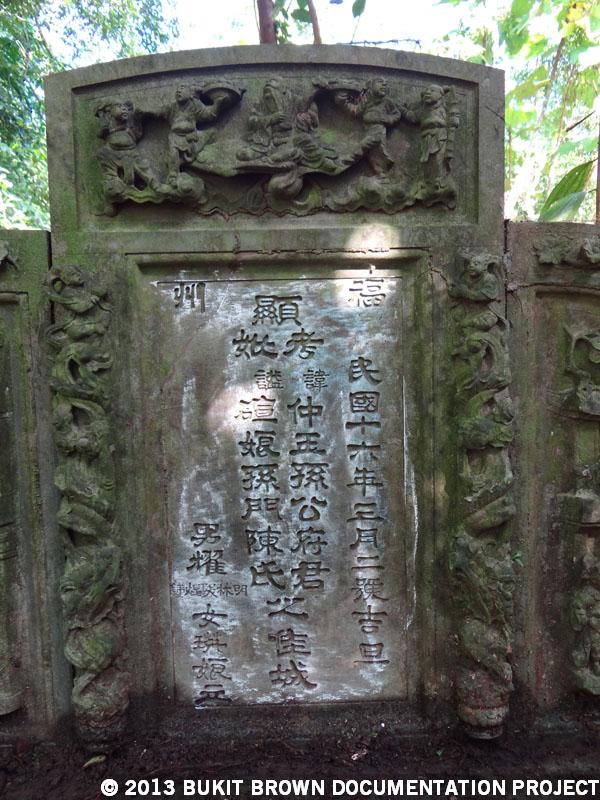 福州
民國十六年三月二號吉旦
顯
考諱仲玉孫公府君
妣謚碹娘孫門陳氏
之佳城
男耀
明林
女娘立
© 2013 BUKIT BROWN DOCUMENTATION PROJECT